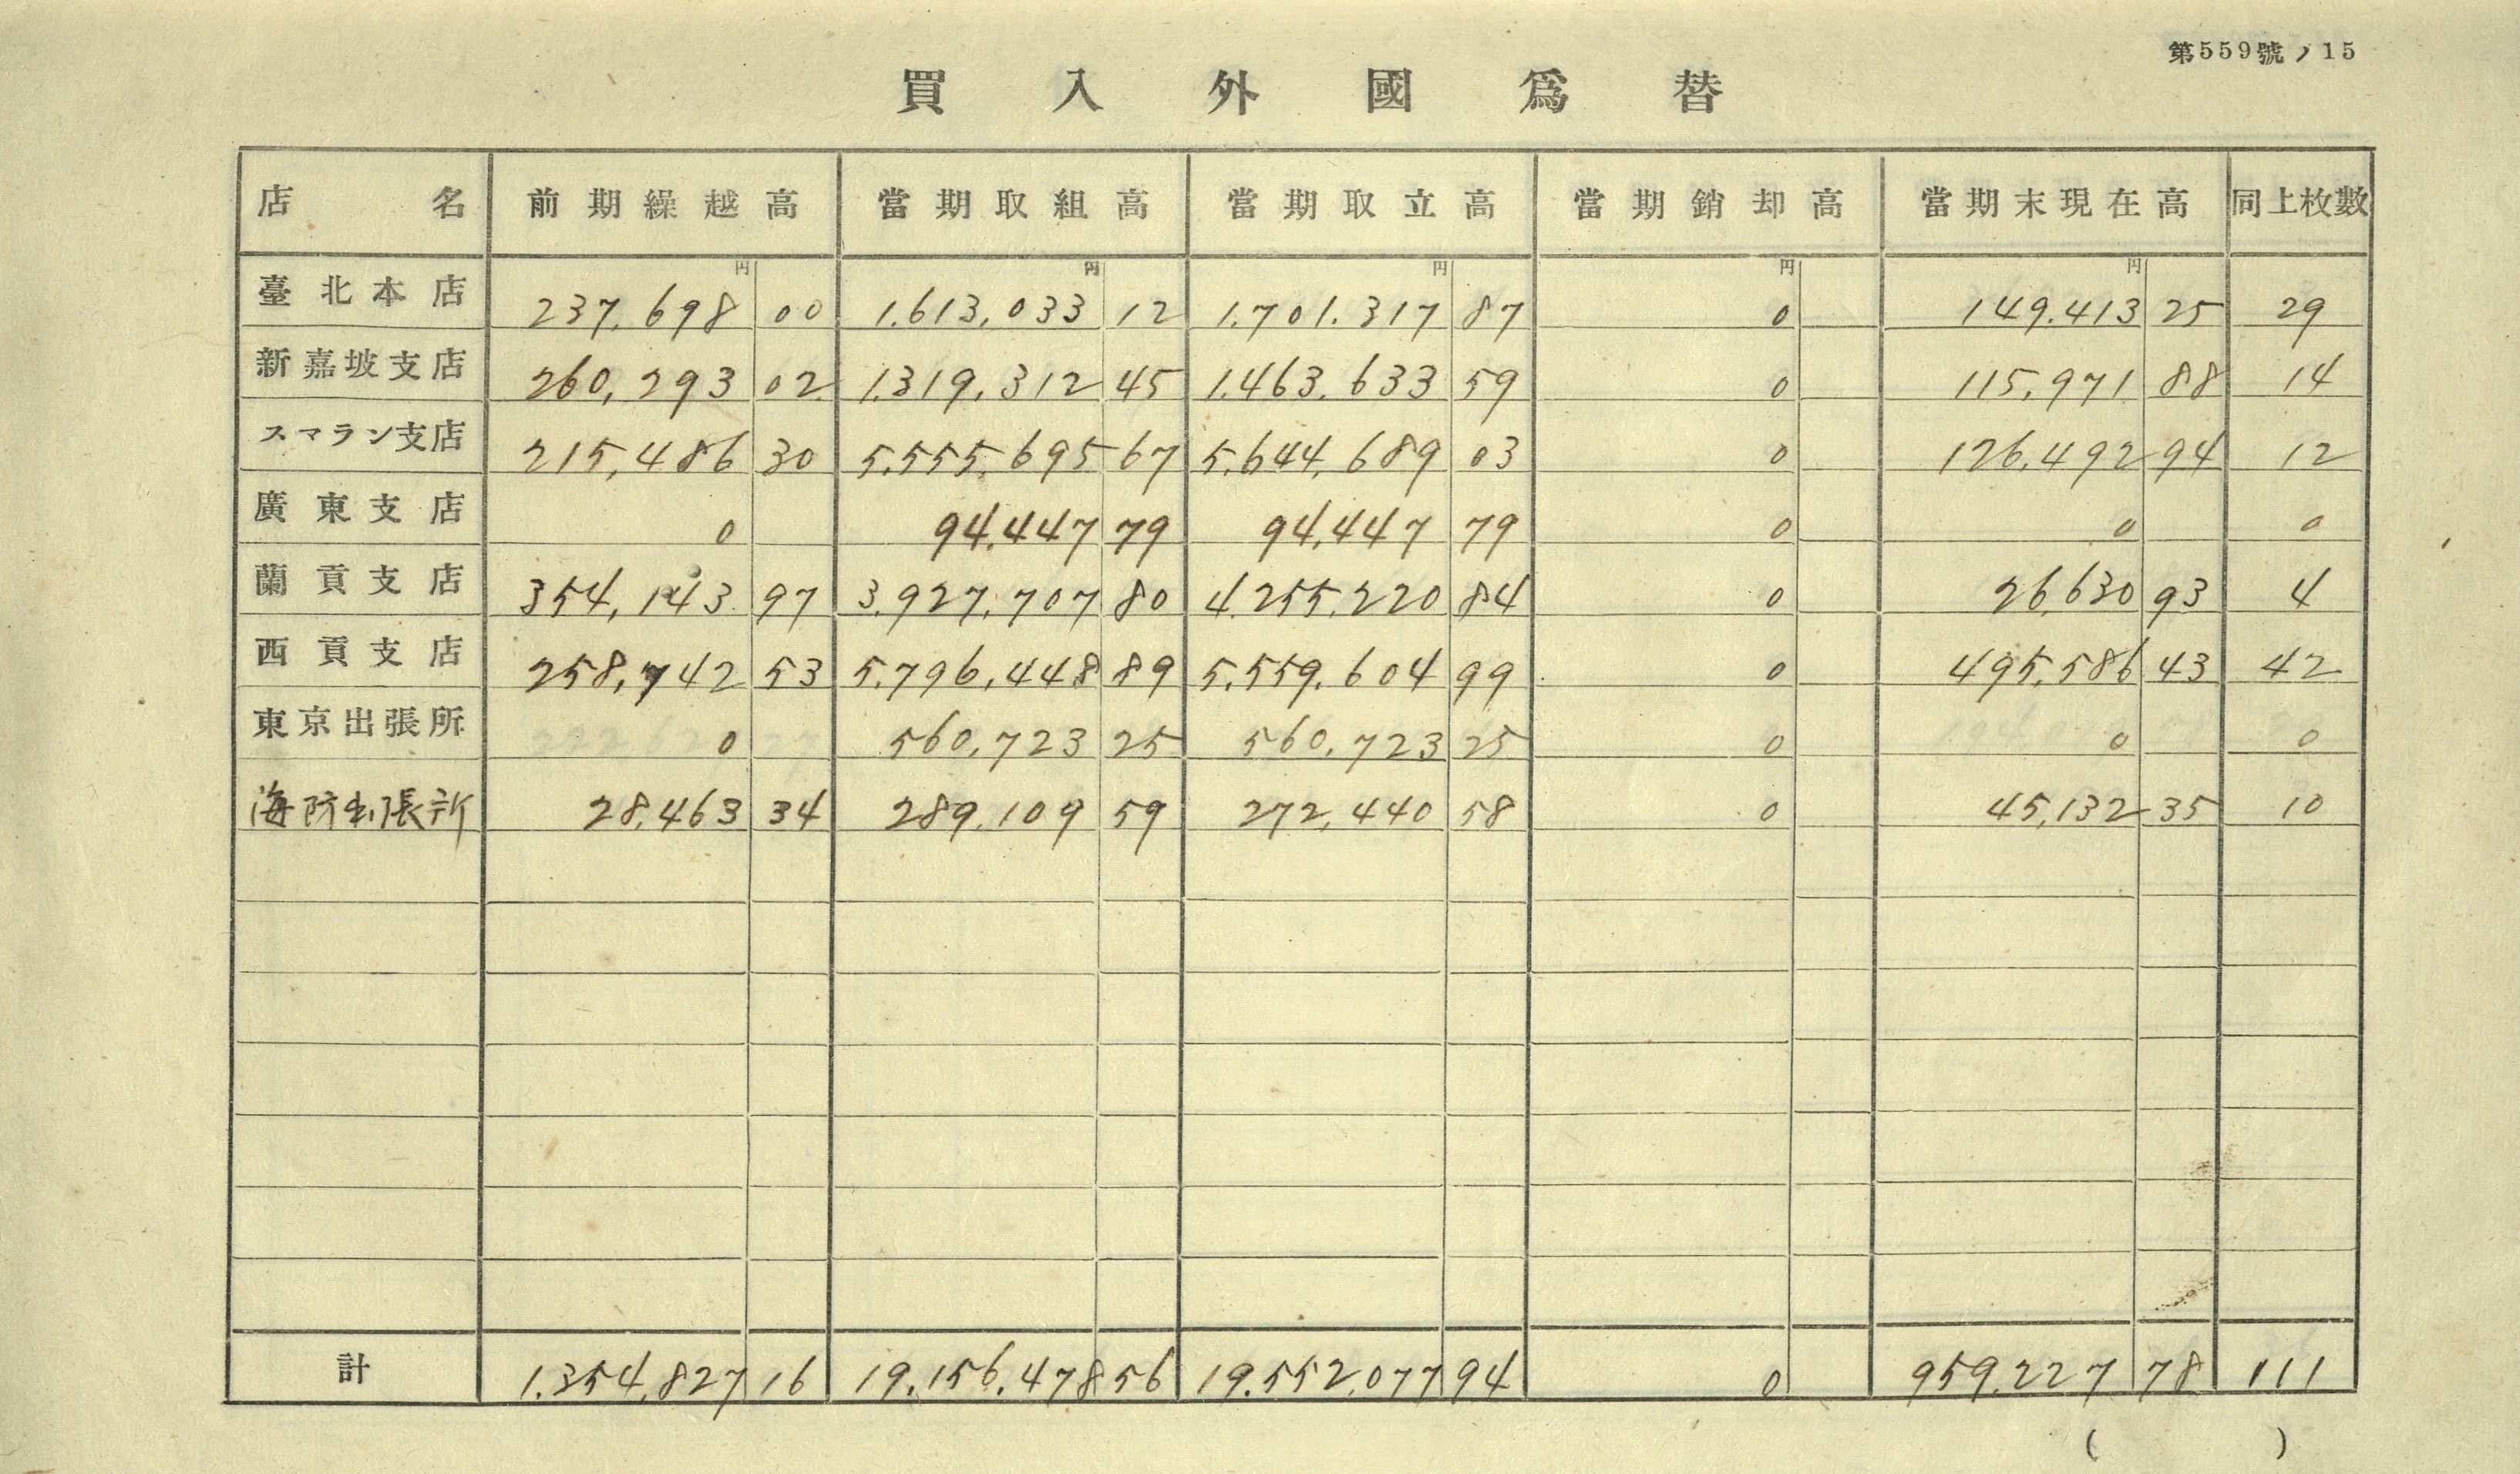 第559號ノ15
買入外國爲替
店名 前期繰越高 當期取組高 當期取立高 當期銷却高 當期末現在高 同上枚數
円 円 円 円 円
臺北本店 237,698 00 1.613,033 12 1.701.317 87 0 149.413 25 29
新嘉坡支店 260,293 02 1.319,312 45 1.463.633 59 0 115,971 88 14
スマラン支店 215,486 30 5.555.695 67 5.644,689 03 0 126.492 94 12
廣東支店 0 94.447 79 94,447 79 0 0 0
蘭貢支店 354,143 97 3.927.707 80 4.255.220 84 0 26.630 93 4
西貢支店 258,742 53 5.796,448 89 5.559.604 99 0 495.586 43 42
東京出張所 0 560,723 25 560,723 25 0 0 0
海防出張所 28,463 34 289.109 59 272,440 58 0 45,132 35 10
計 1.354,827 16 19.156.478 56 19.552.077 94 0 959.227 78 111
( )